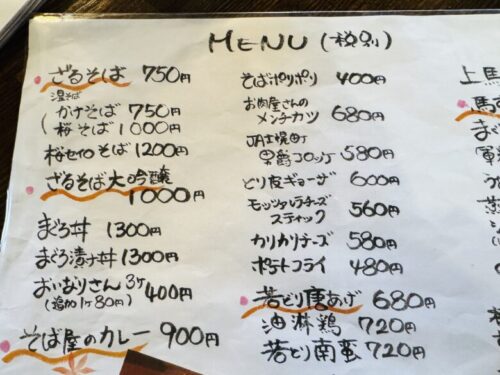 MENU (税別)
ざるそば 750円
温そば
かけそば 750円
桜そば 1000円
桜セイロそば 1200円
ざるそば大吟醸
1000円
まぐろ丼 1300円
まぐろ漬け丼 1300円
おいなりさん 3ヶ 400円
(追加1ヶ80円)
そば屋のカレー 900円
そばポリポリ 400円
お肉屋さんの
メンチカツ 680円
JA士幌町
男爵コロッケ 580円
とり皮ギョーザ 600円
モッツァレラチーズ
スティック 560円
カリカリチーズ 580円
ポテトフライ 480円
若どり唐あげ 680円
油淋鶏 720円
若どり南蛮 720円
上馬
馬